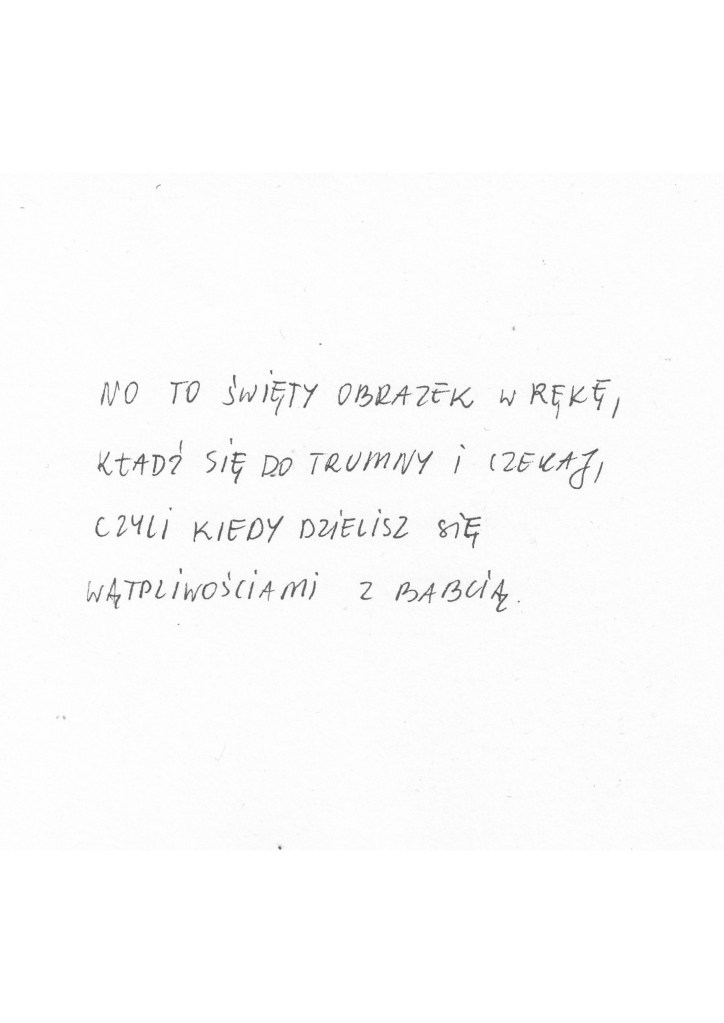 NO TO ŚWIĘTY OBRAZEK W RĘKĘ,
KŁADŹ SIĘ DO TRUMNY I CZEKAJ,
CZYLI KIEDY DZIELISZ SIĘ
WĄTPLIWOŚCIAMI Z BABCIĄ.